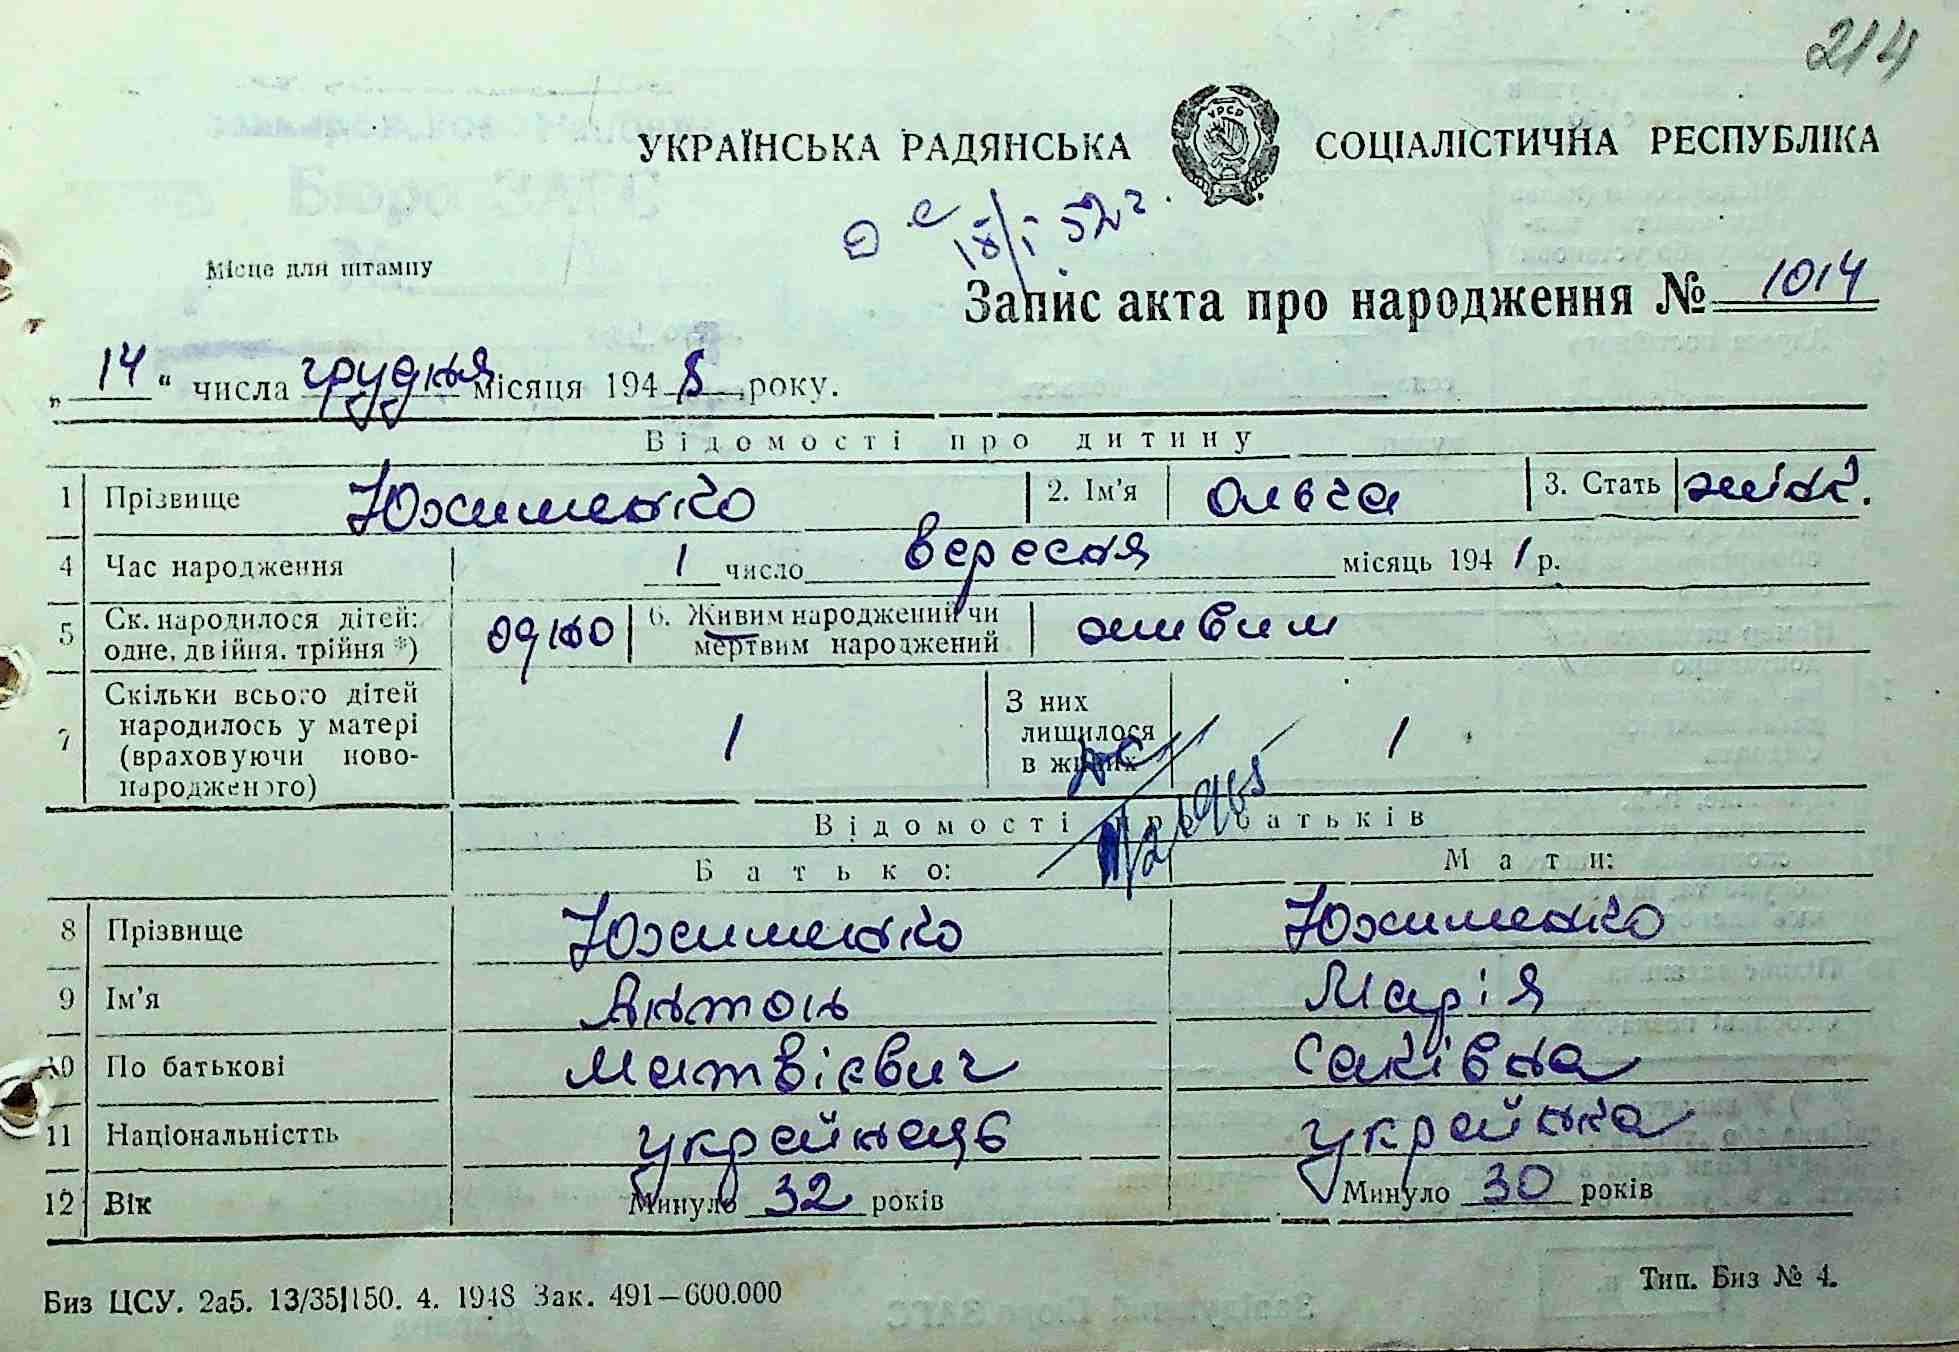 214
УКРАЇНСЬКА РАДЯНСЬКА СОЦІАЛІСТИЧНА РЕСПУБЛІКА
УРСР
Місце для штампу
Запис акта про народження № 1014
„ 14 “ числа грудня місяця 194 8 року.
Відомості про дитину
1 Прізвище Юхименко 2. Ім'я Ольга 3. Стать жіноч.
4 Час народження 1 число вересня місяць 194 1 р.
5 Ск. народилося дітей: одне, двійня, трійня *) одно 6. Живим народжений чи мертвим народжений живим
7 Скільки всього дітей народилось у матері (враховуючи ново-народженого) 1 З них лишилося в живих 1
Відомості про батьків
Батько: Мати:
8 Прізвище Юхименко Юхименко
9 Ім'я Антон Марія
10 По батькові Матвієвич Саківна
11 Національністть українець українка
12 Вік Минуло 32 років Минуло 30 років
Биз ЦСУ. 2а5. 13/35 150. 4. 1948 Зак. 491—600.000 Тип. Биз № 4.